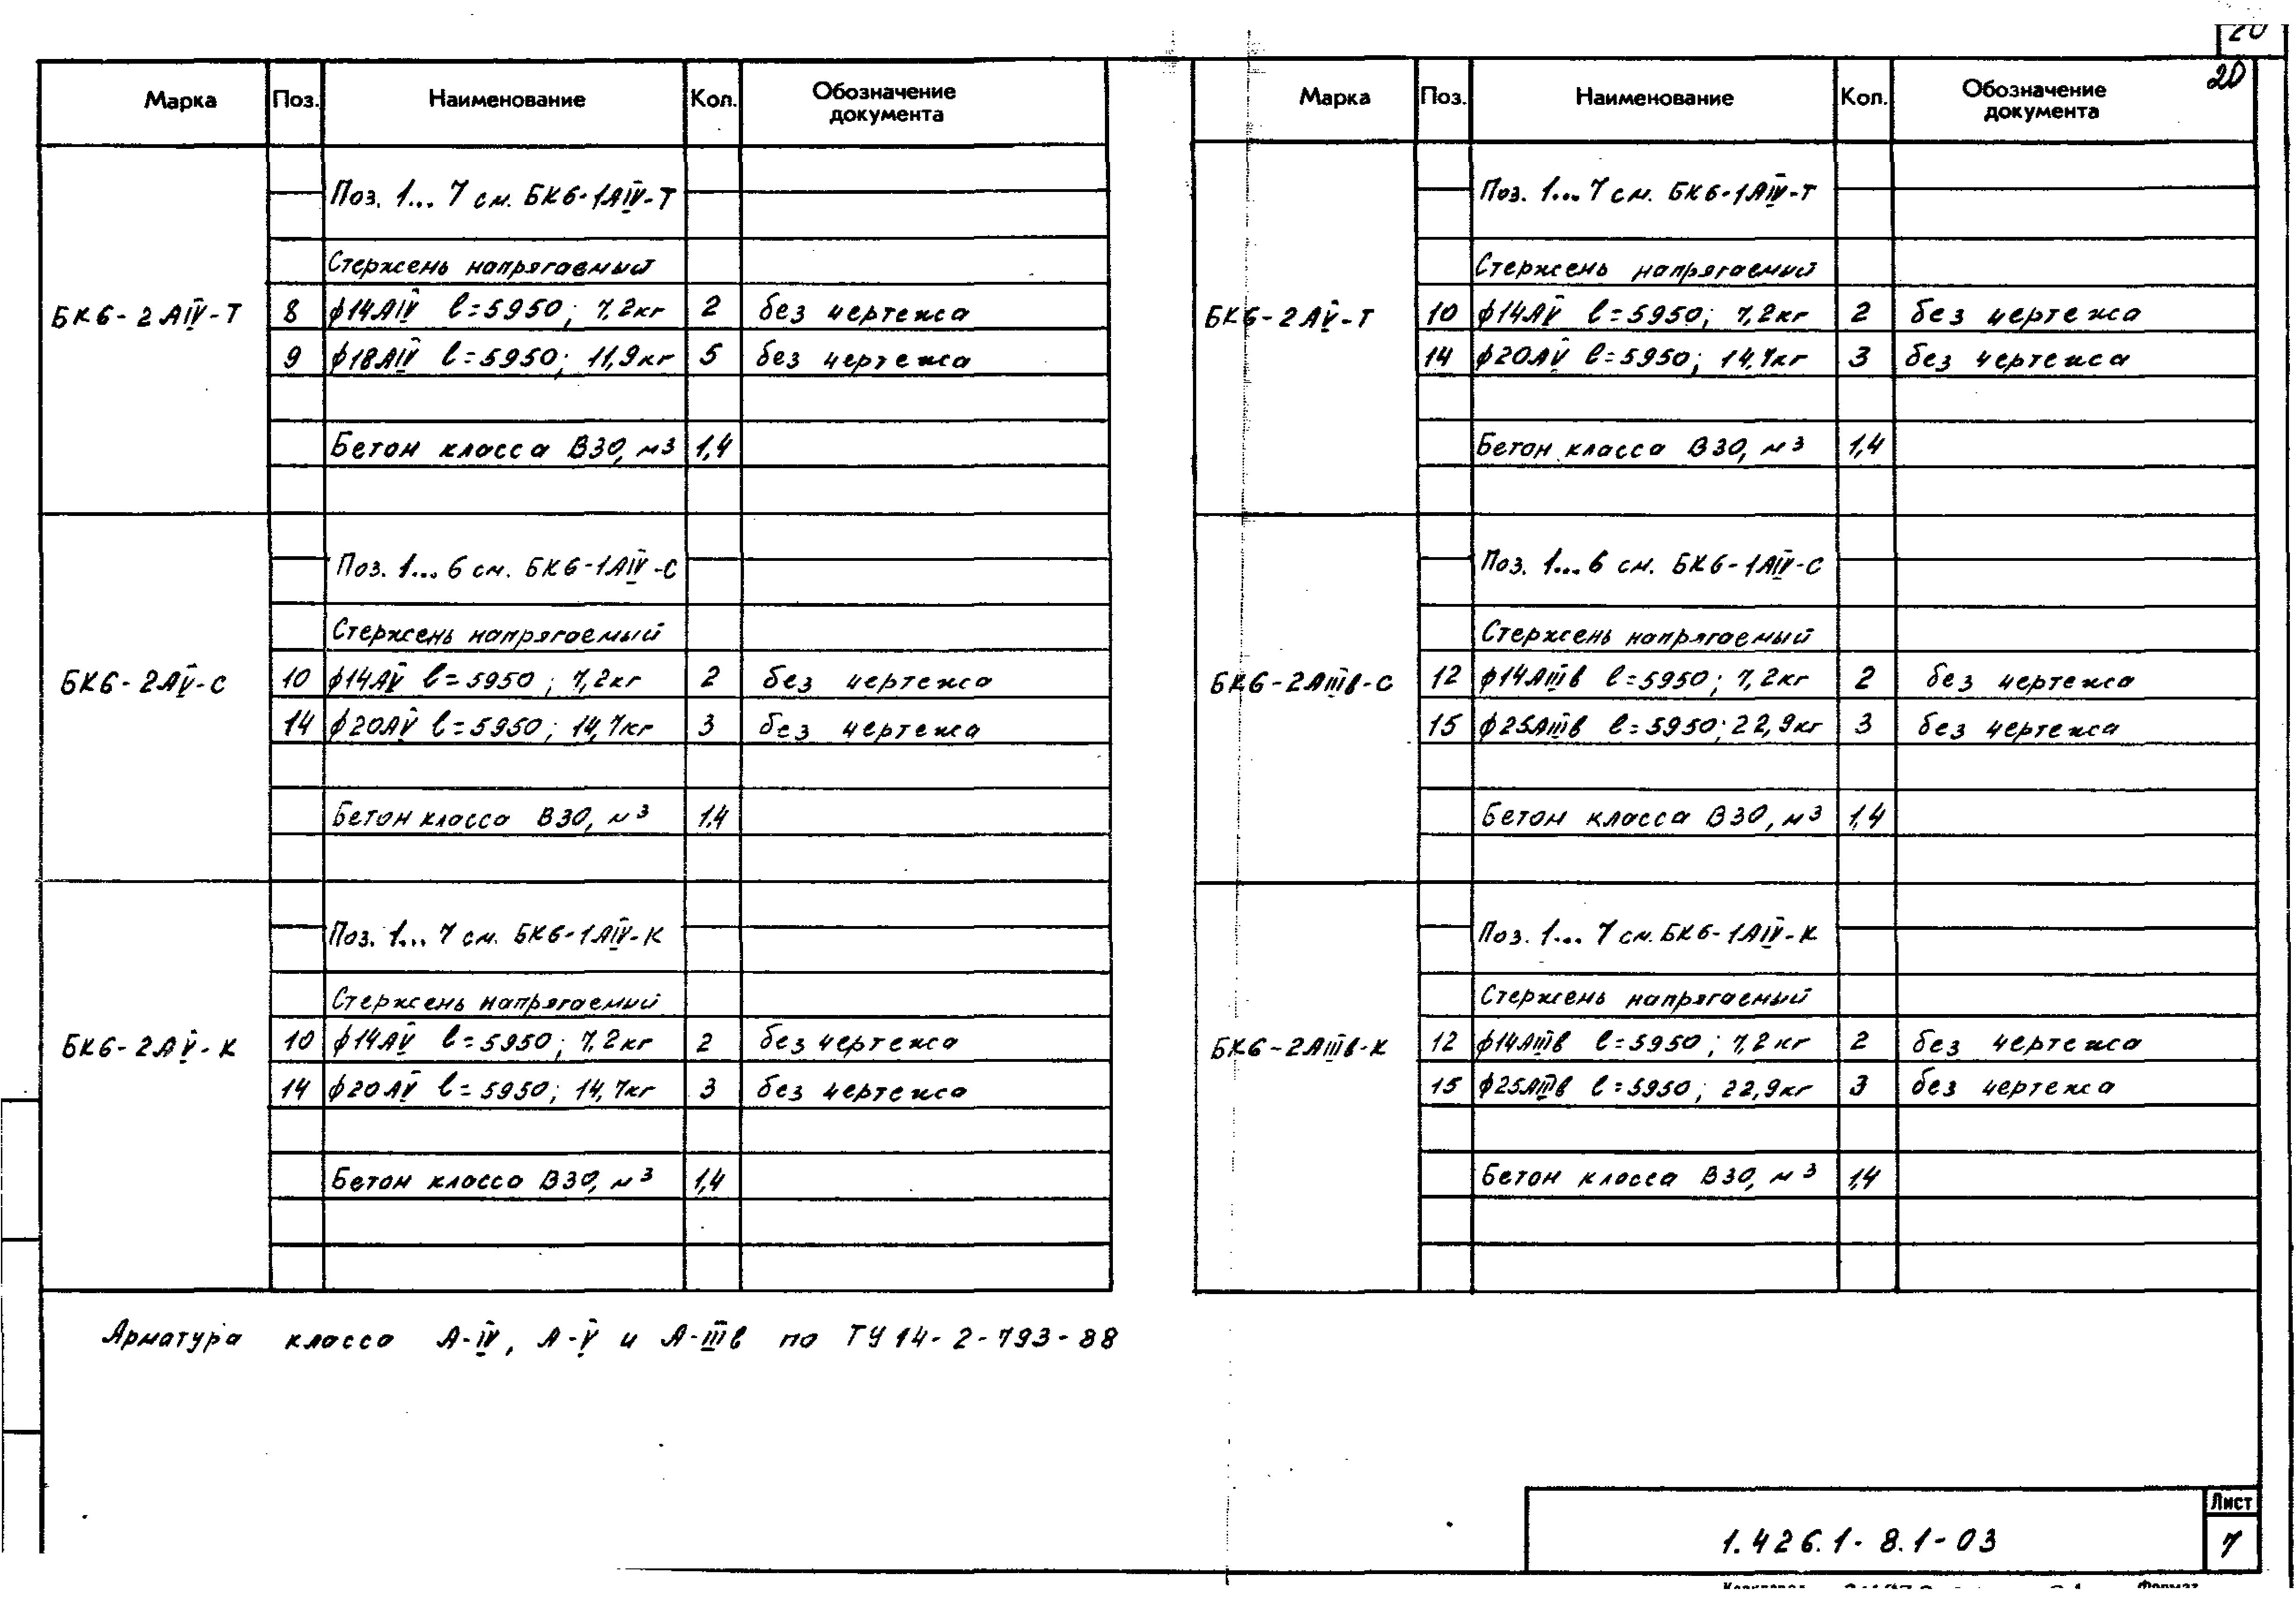 20
Марка Поз. Наименование Кол. Обозначение документа
Поз. 1... 7 см. БК6-1АIV-Т
Стержень напрягаемый
БК6-2АIV-Т 8 ϕ14АIV ℓ=5950; 7,2кг 2 без чертежа
9 ϕ18АIV ℓ=5950; 11,9кг 5 без чертежа
Бетон класса В30, м3 1,4
Поз. 1... 6 см. БК6-1АIV-С
Стержень напрягаемый
БК6-2АV-С 10 ϕ14АV ℓ=5950; 7,2кг 2 без чертежа
14 ϕ20АV ℓ=5950; 14,7кг 3 без чертежа
Бетон класса В30, м3 1,4
Поз. 1... 7 см. БК6-1АIV-К
Стержень напрягаемый
БК6-2АV-К 10 ϕ14АV ℓ=5950; 7,2кг 2 без чертежа
14 ϕ20АV ℓ=5950; 14,7кг 3 без чертежа
Бетон класса В30, м3 1,4
Арматура класса А-IV, А-V и А-IIIв по ТУ 14-2-793-88
20
Марка Поз. Наименование Кол. Обозначение документа
Поз. 1... 7 см. БК6-1АIV-Т
Стержень напрягаемый
БК6-2АV-Т 10 ϕ14АV ℓ=5950; 7,2кг 2 без чертежа
14 ϕ20АV ℓ=5950; 14,7кг 3 без чертежа
Бетон класса В30, м3 1,4
Поз. 1... 6 см. БК6-1АIV-С
Стержень напрягаемый
БК6-2АIIIв-С 12 ϕ14АIIIв ℓ=5950; 7,2кг 2 без чертежа
15 ϕ25АIIIв ℓ=5950; 22,9кг 3 без чертежа
Бетон класса В30, м3 1,4
Поз. 1... 7 см. БК6-1АIV-К
Стержень напрягаемый
БК6-2АIIIв-К 12 ϕ14АIIIв ℓ=5950; 7,2кг 2 без чертежа
15 ϕ25АIIIв ℓ=5950; 22,9кг 3 без чертежа
Бетон класса В30, м3 1,4
1.426.1-8.1-03
Лист
7